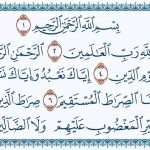 بِسْمِ اللَّهِ الرَّحْمَٰنِ الرَّحِيمِ ١
لَّهِ رَبِّ الْعَالَمِينَ ٢ الرَّحْمَٰنِ الرَّ
الدِّينِ ٤ إِيَّاكَ نَعْبُدُ وَإِيَّاكَ نَ
نَا الصِّرَاطَ الْمُسْتَقِيمَ ٦ صِرَاطَ الَّذِ
غَيْرِ الْمَغْضُوبِ عَلَيْهِمْ وَلَا الضَّالِّي